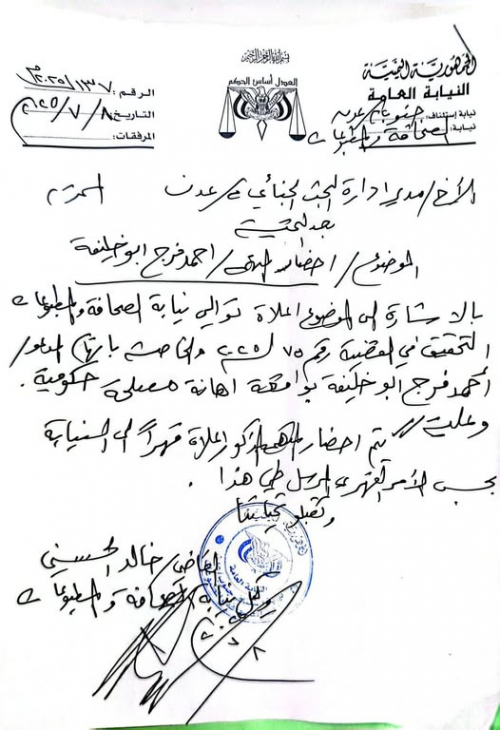 الجمهورية اليمنية
النيابة العامة
نيابة إستئناف: جنوب م/عدن
نيابة: الصحافة والمطبوعات
بسم الله الرحمن الرحيم
العدل أساس الحكم
الرقم: ١٣٧/٢٠٢٥م
التاريخ: ٨/٧/٢٠٢٥
المرفقات:
الأخ/ مدير ادارة البحث الجنائي م/ عدن المحترم
بعد التحية
الموضوع/ احضار المتهم/ احمد فرج ابو خليفة
بالاشارة الى الموضوع اعلاه توالي نيابة الصحافة والمطبوعات
التحقيق في القضية رقم ٧٥ ل ٢٠٢٥ والخاصة باتهام المدعو/
أحمد فرج ابو خليفة بواقعة اهانة مصلحة حكومية.
وعليه// يتم احضار المتهم المذكور اعلاه قهراً الى النيابة
بحسب الأمر القهري المرسل طي هذا.
وتقبلو تحياتنا
القاضي/ خالد الحسيني
وكيل نيابة الصحافة والمطبوعات